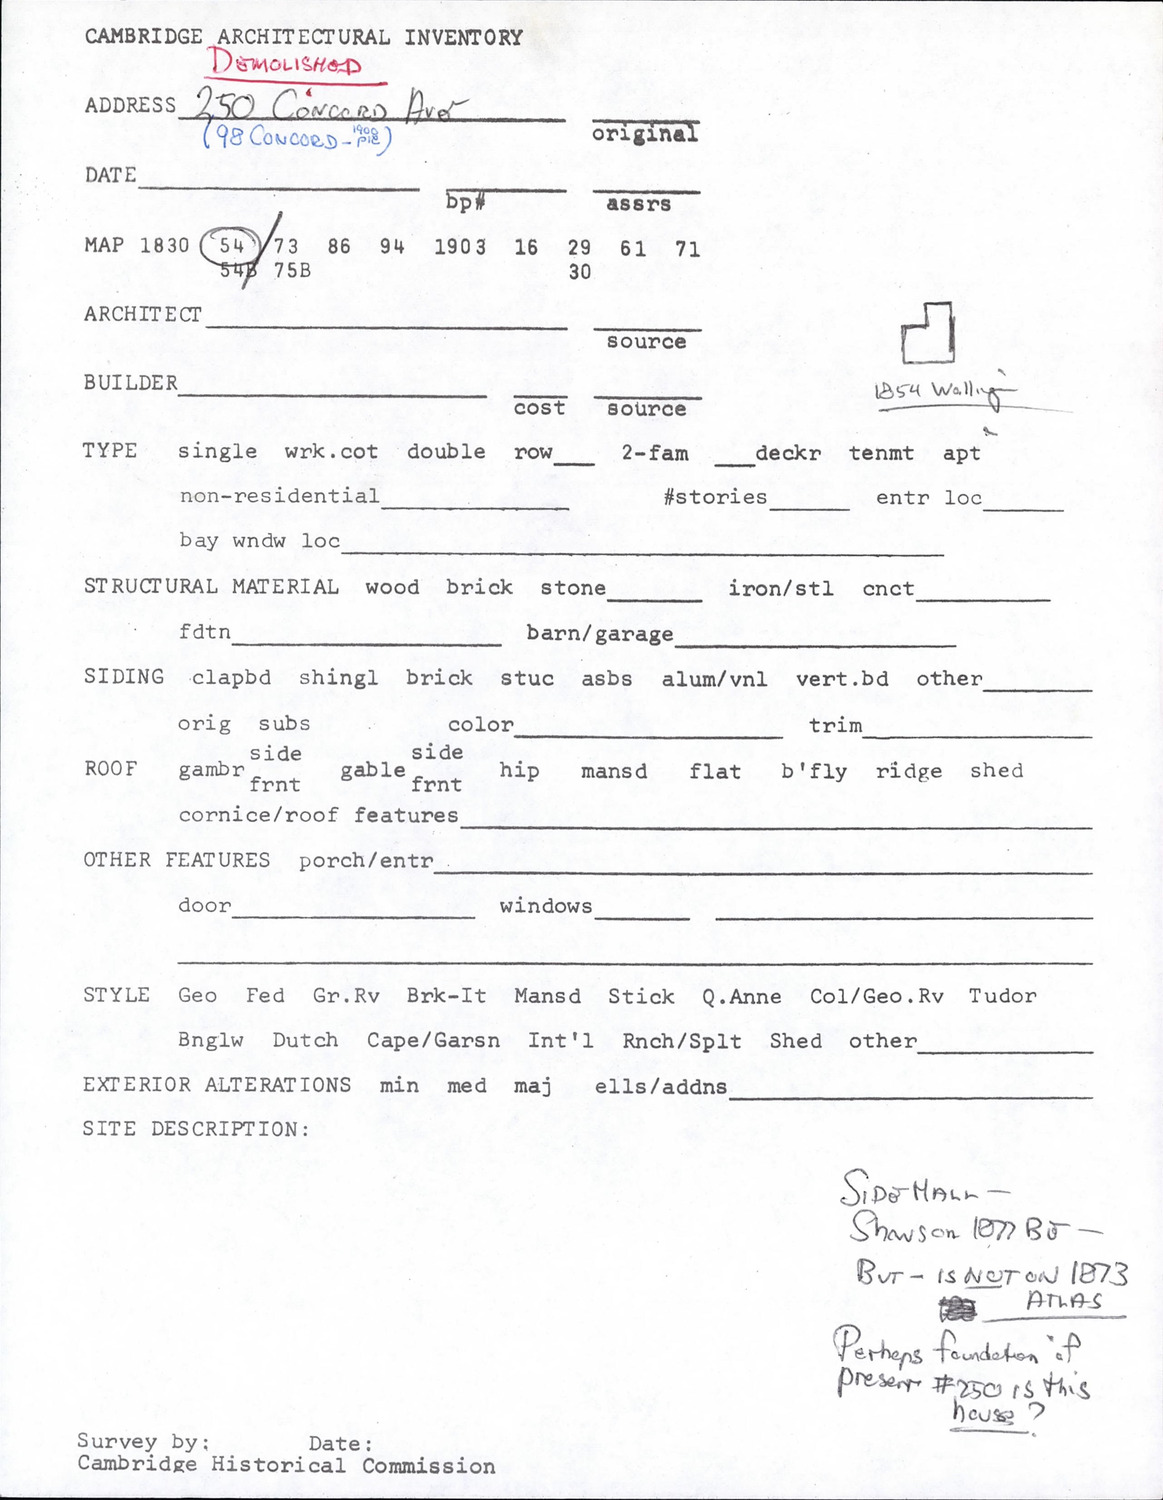 CAMBRIDGE ARCHITECTURAL INVENTORY
DEMOLISHED
ADDRESS 250 CONCORD AVE
original
(98 CONCORD - PRE 1908)
DATE
bp# assrs
MAP 1830 54 / 73 86 94 1903 16 29 61 71
54B 75B 30
ARCHITECT
source
BUILDER
cost source
1854 Walling
TYPE single wrk.cot double row 2-fam deckr tenmt apt
non-residential #stories entr loc
bay wndw loc
STRUCTURAL MATERIAL wood brick stone iron/stl cnct
fdtn barn/garage
SIDING clapbd shingl brick stuc asbs alum/vnl vert.bd other
orig subs color trim
side side
ROOF gambr gable hip mansd flat b'fly ridge shed
frnt frnt
cornice/roof features
OTHER FEATURES porch/entr
door windows
STYLE Geo Fed Gr.Rv Brk-It Mansd Stick Q.Anne Col/Geo.Rv Tudor
Bnglw Dutch Cape/Garsn Int'l Rnch/Splt Shed other
EXTERIOR ALTERATIONS min med maj ells/addns
SITE DESCRIPTION:
SIDE HALL —
Shows on 1877 BE —
BUT — IS NOT ON 1873
ATLAS
Perhaps foundation of
present #250 is this
house?
Survey by: Date:
Cambridge Historical Commission